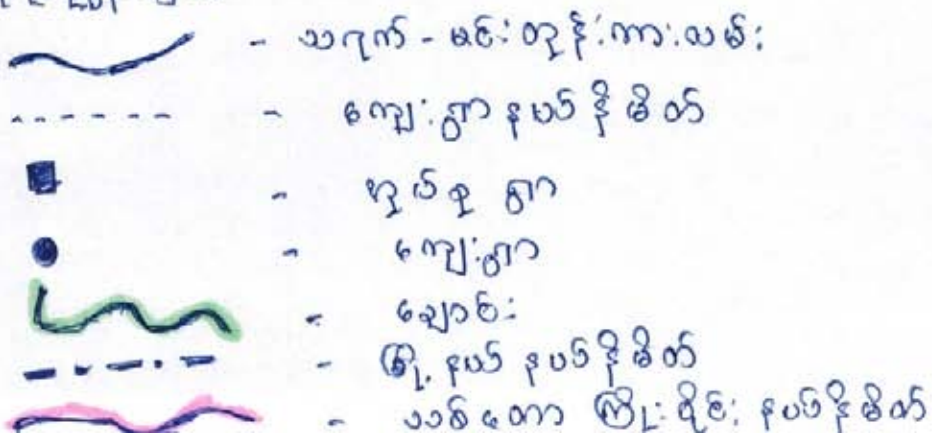 - သရက် - မင်းတုန်းကားလမ်း
- ကျေးရွာနယ်နိမိတ်
- အုပ်စုရွာ
- ကျေးရွာ
- ချောင်း
- မြို့နယ်နယ်နိမိတ်
- သစ်တောကြိုးဝိုင်းနယ်နိမိတ်